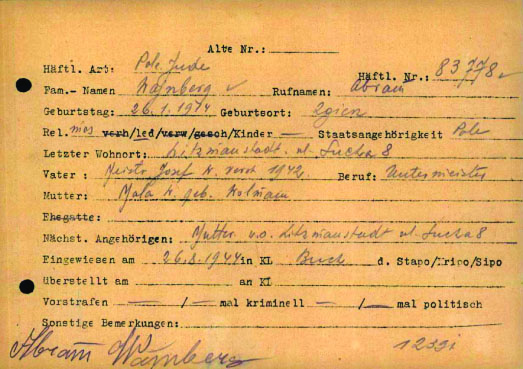 Alte Nr.:
Häftl. Art: Pole Jude Häftl. Nr.: 83778
Fam.- Namen Wajnberg Rufnamen: Abram
Geburtstag: 26.1.1914 Geburtsort: Zgierz
Rel. mos verh/led/verw/gesch/Kinder — Staatsangehörigkeit Pole
Letzter Wohnort: Litzmannstadt. ul. Sucha 8
Vater: Josef W. 1942. Beruf:
Mutter: W. geb.
Ehegatte:
Nächst. Angehörigen: Mutter w.o. Litzmannstadt ul. Sucha 8
Eingewiesen am 26.8.1944 in KL Buch d. Stapo/Kripo/Sipo
überstellt am an KL
Vorstrafen — / — mal kriminell — / — mal politisch
Sonstige Bemerkungen:
Abram Wajnberg